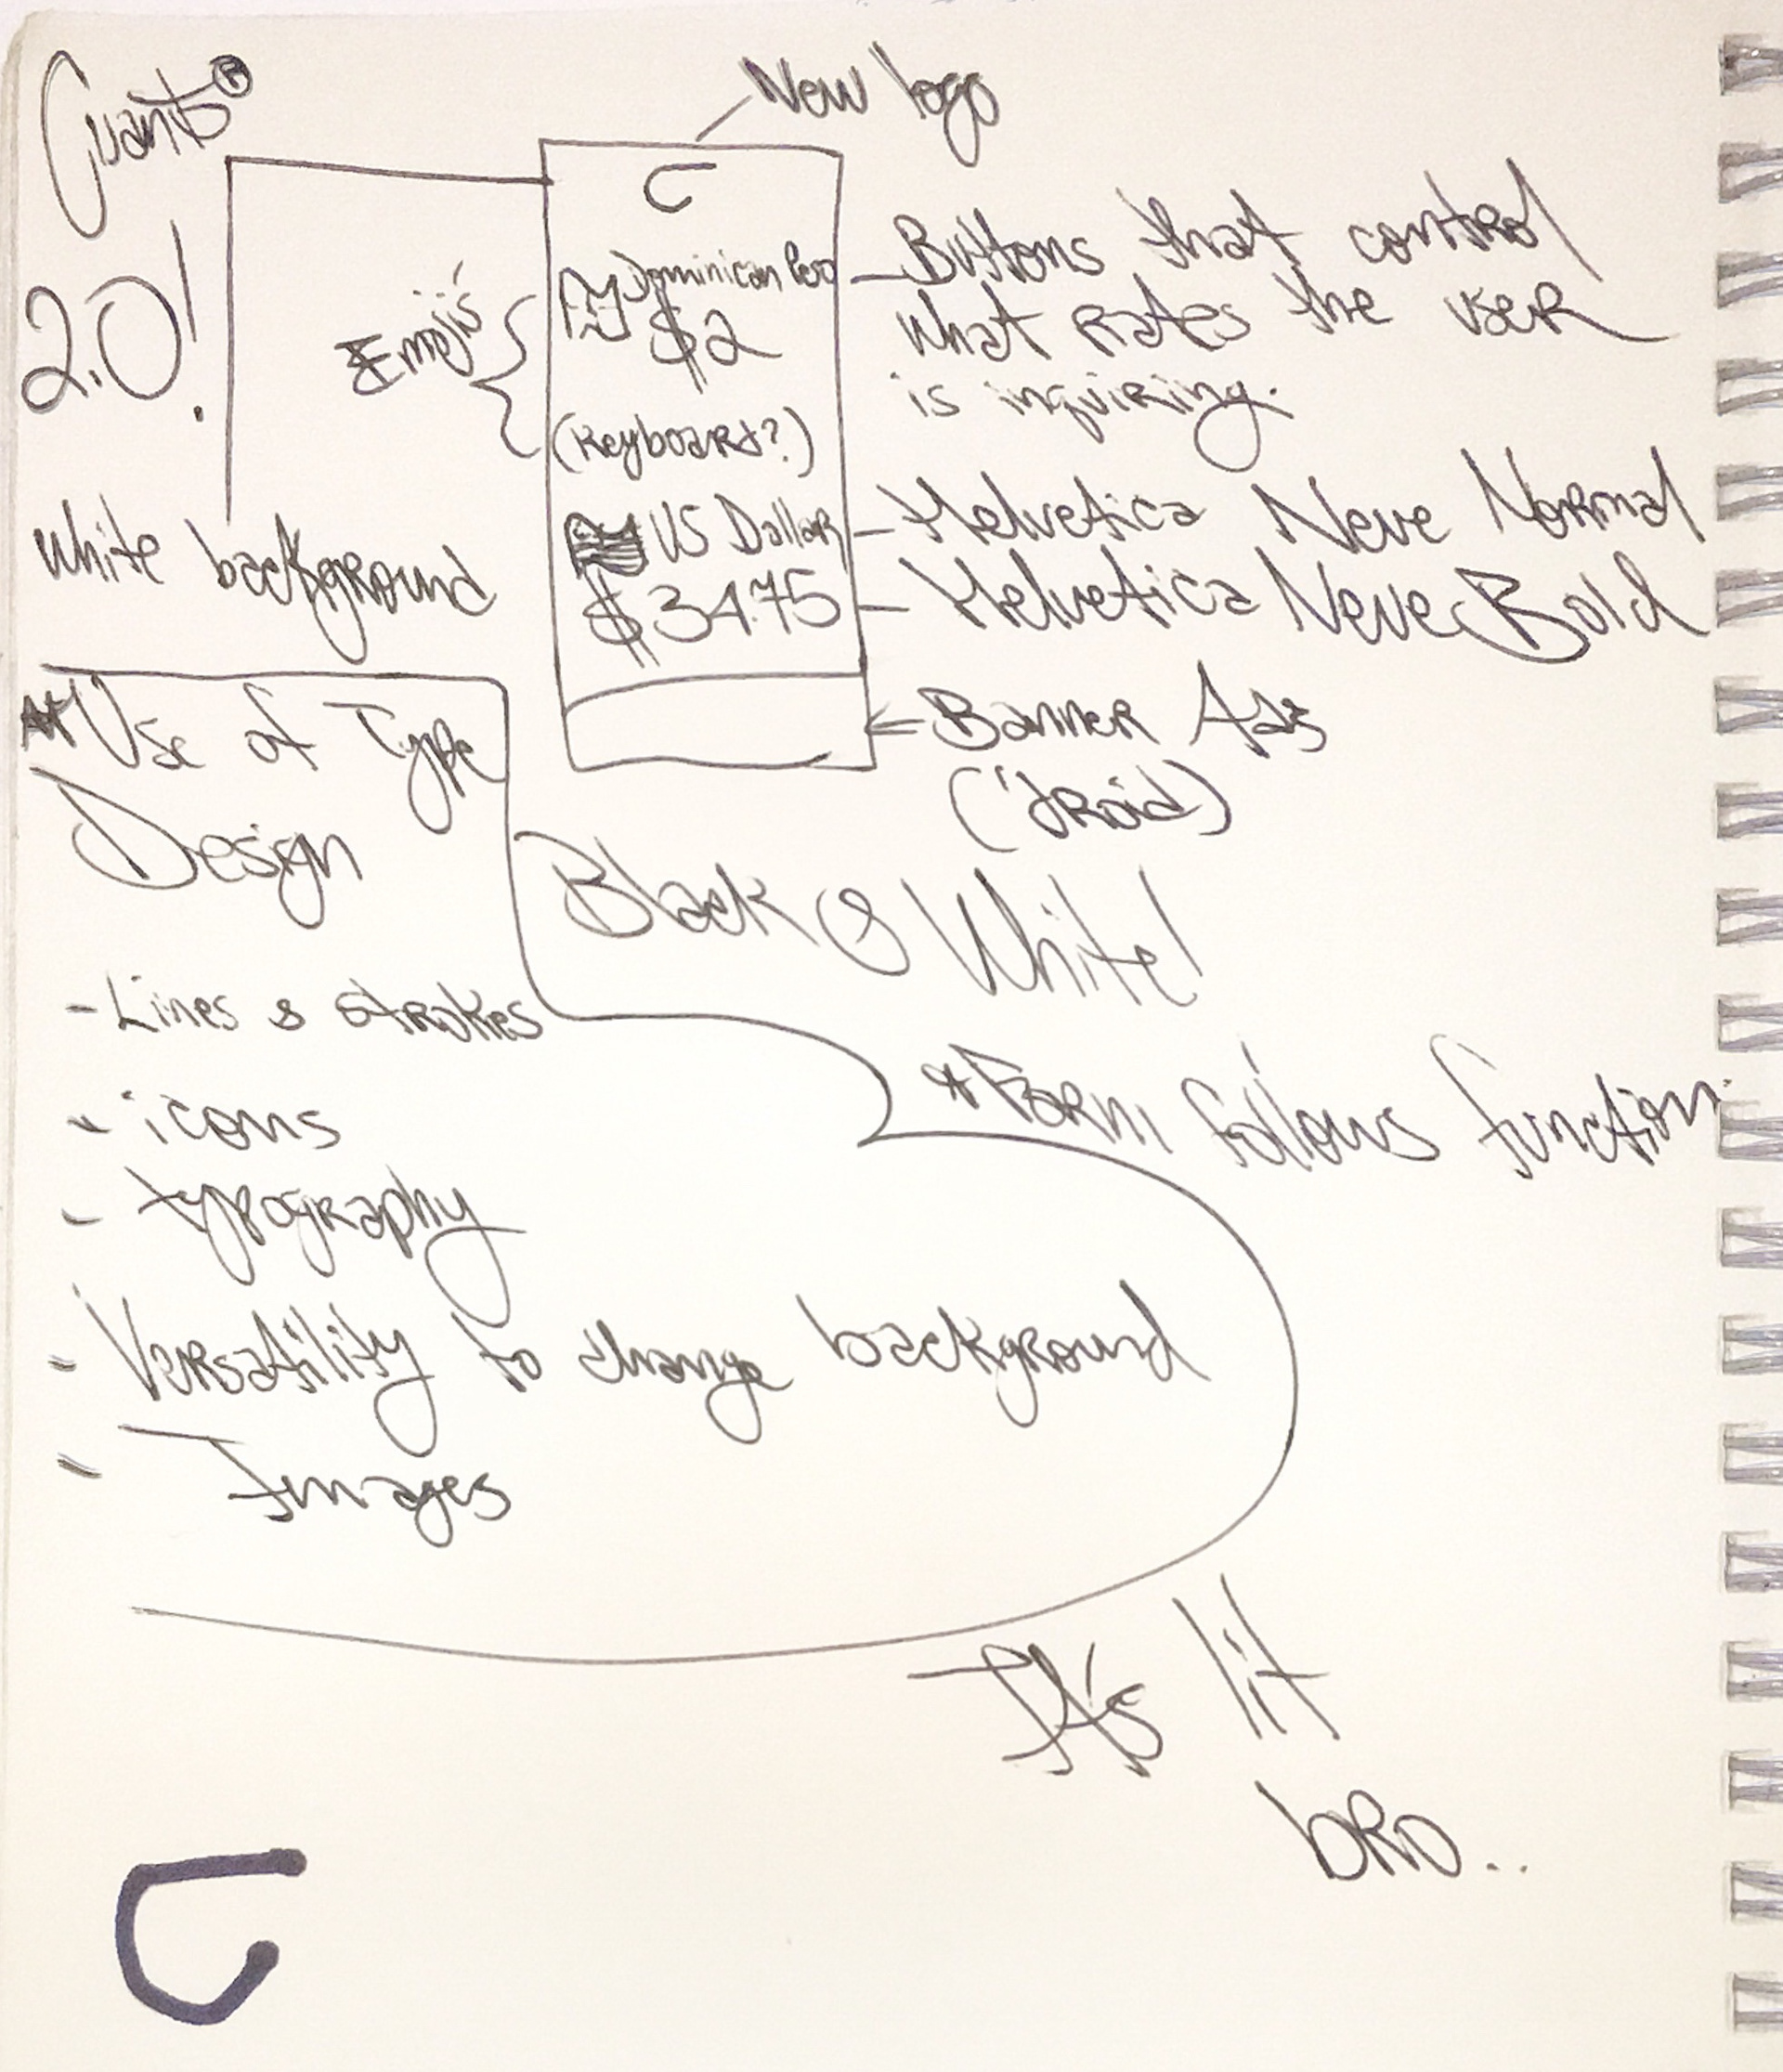 Cuanto®
2.0!
New logo
Dominican Peso
$2
(Keyboard?)
US Dollar
$34.75
Emoji's
White background
Buttons that control
what rates the user
is inquiring.
Helvetica Neue Normal
Helvetica Neue Bold
Banner Ads
('droid)
*Use of Type
Design
Black & White!
- Lines & strokes
- icons
- typography
- Versatility to change background
- Images
*Form follows function.
It's lit
bro..
C